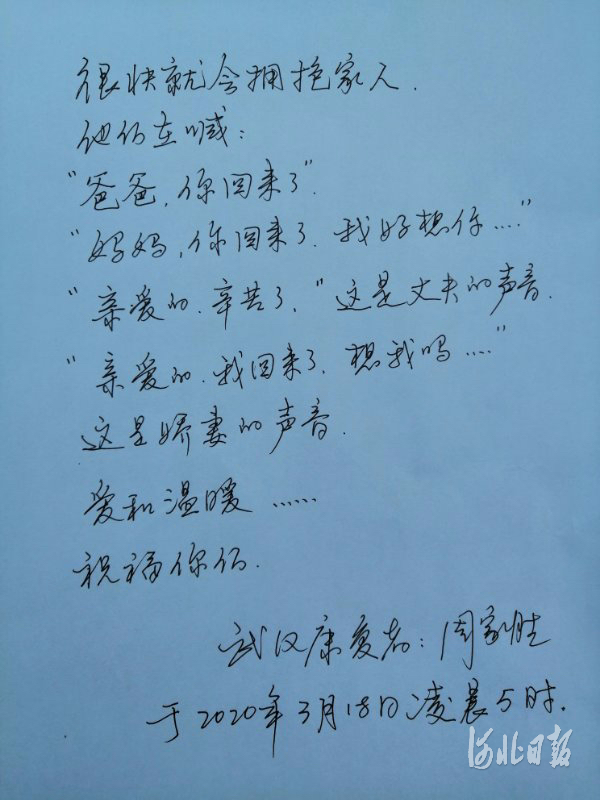 很快就会拥抱家人.
他们在喊:
"爸爸,你回来了".
"妈妈,你回来了.我好想你...."
"亲爱的.辛苦了,"这是丈夫的声音.
"亲爱的.我回来了,想我吗....."
这是娇妻的声音.
爱和温暖......
祝福你们.
武汉康复者:周家胜
于2020年3月18日凌晨5时.
河北日报